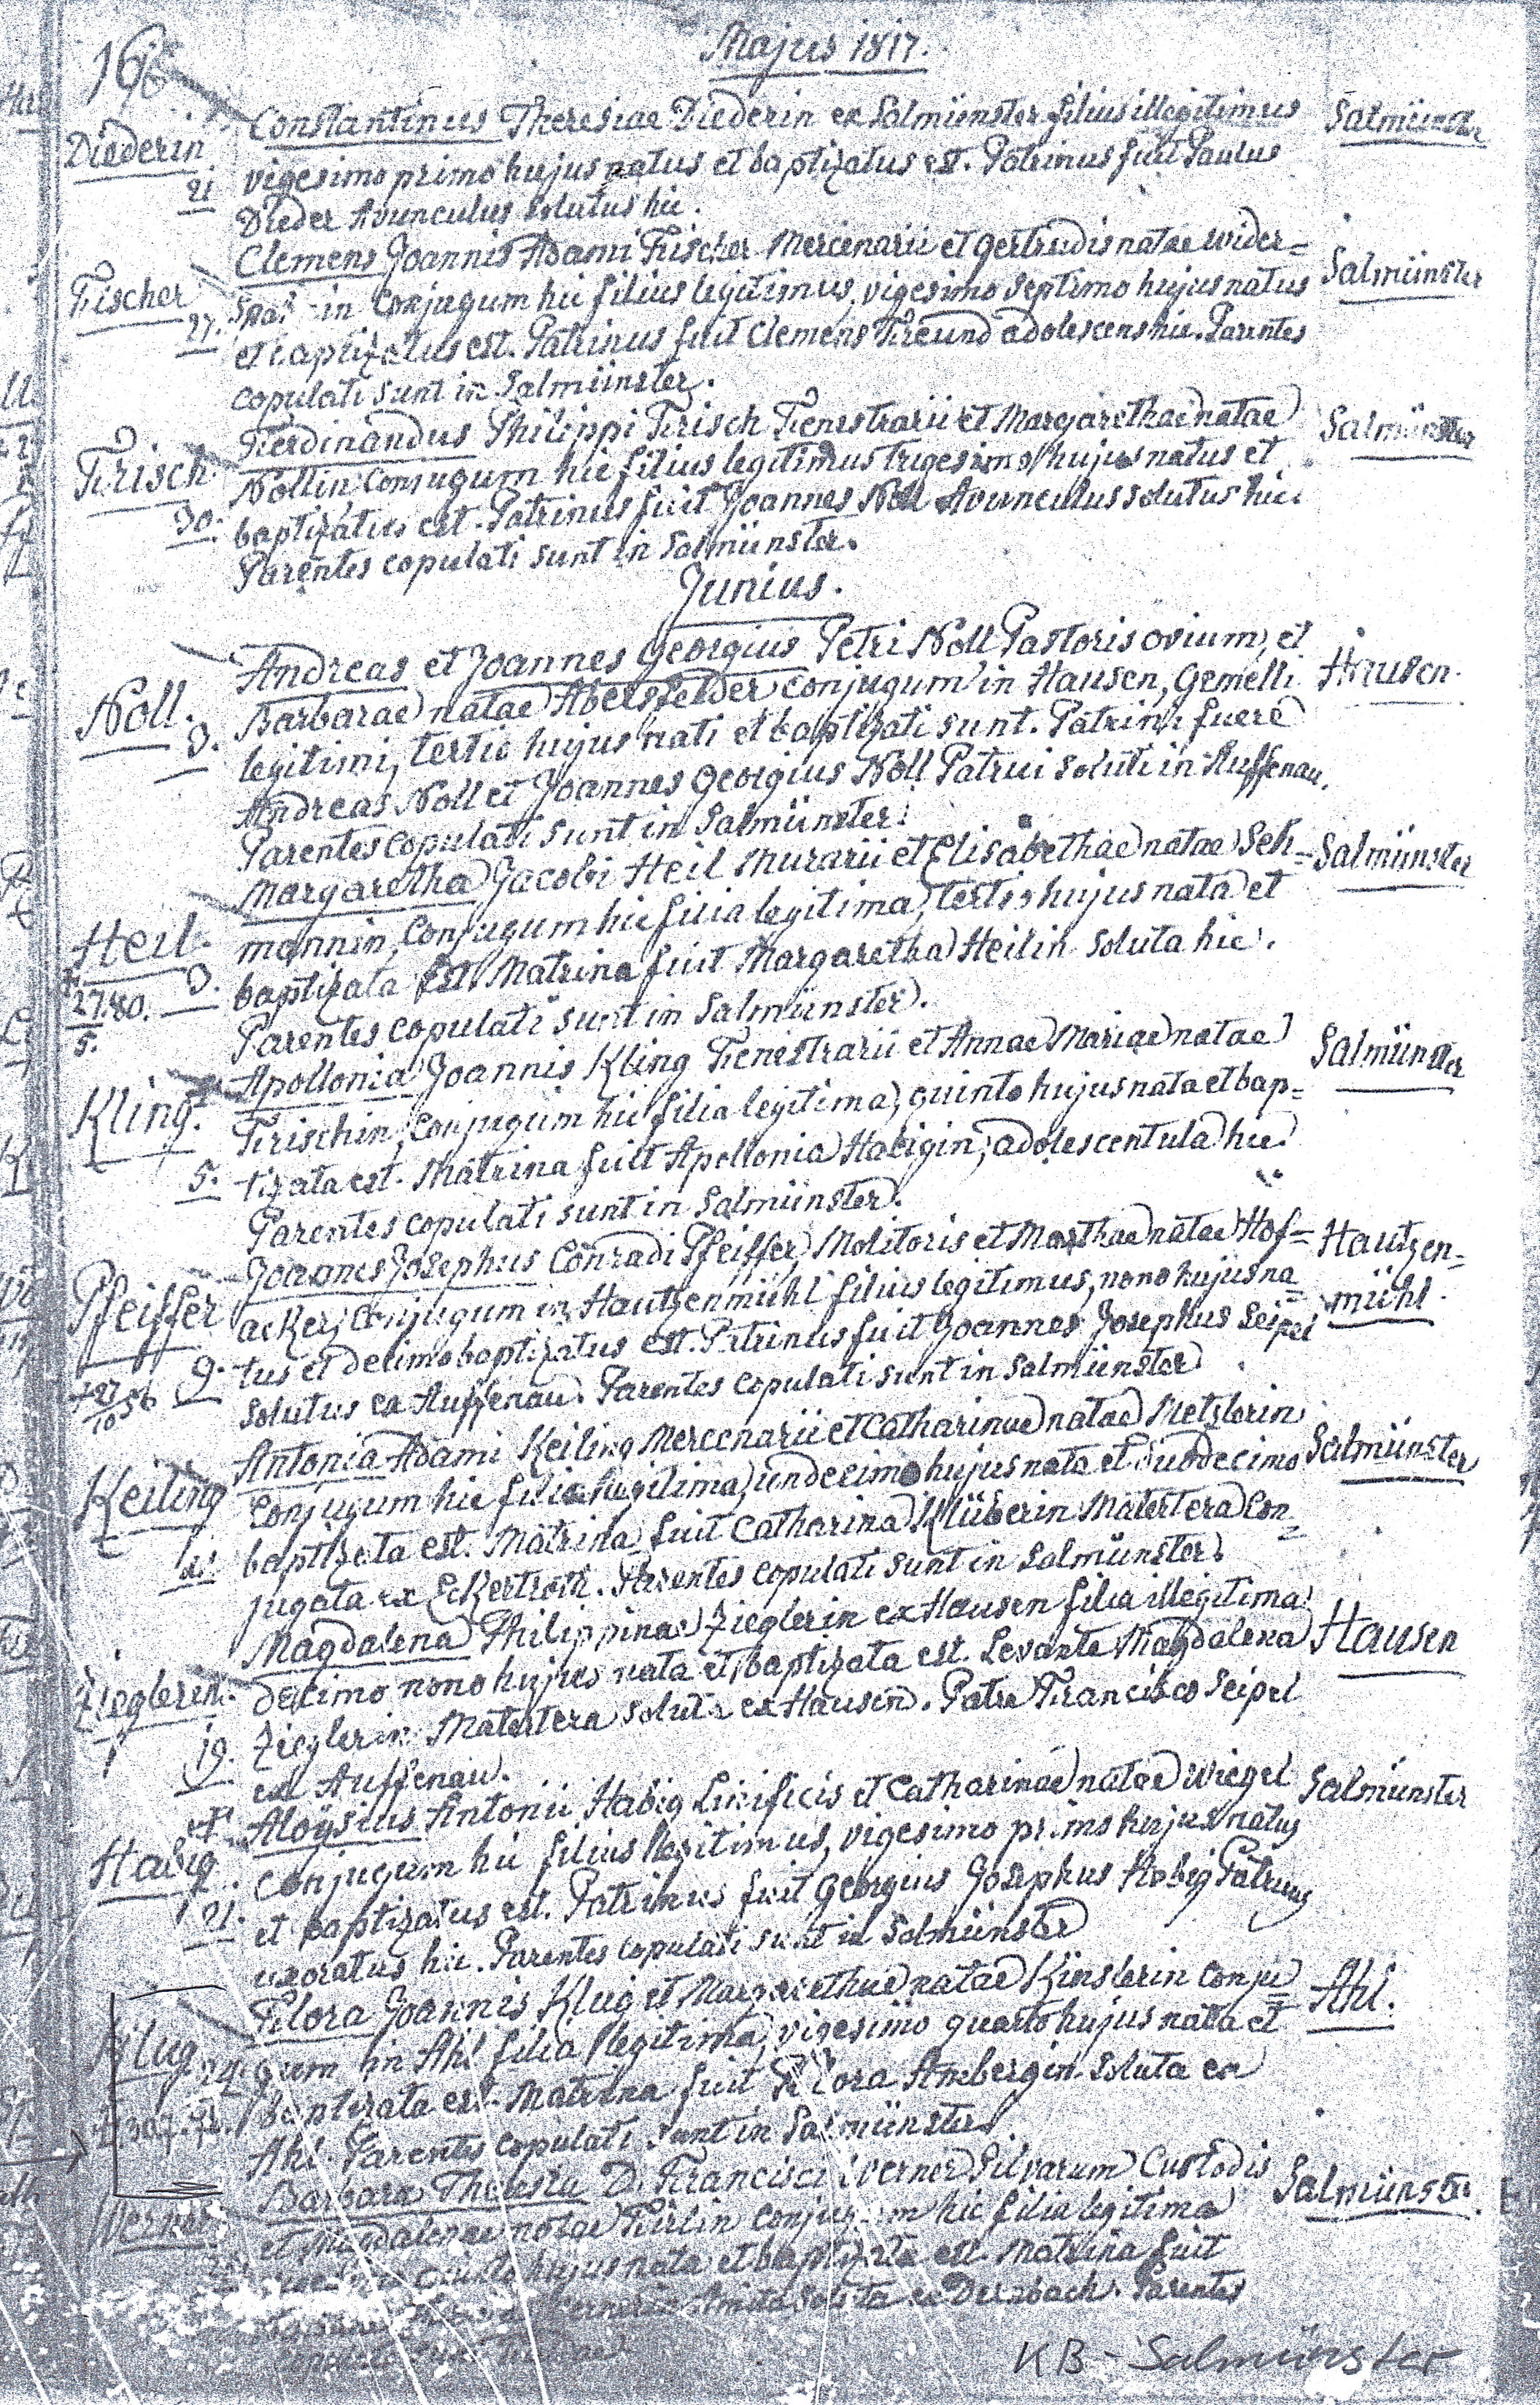 Majus 1817.
16
Diederin
21
Constantinus Theresiae Diederin ex Salmünster filius illegitimus
Salmünster
vigesimo primo hujus natus et baptizatus est. Patrinus fuit Paulus
Dieder Avunculus solutus hic.
Fischer
27.
Clemens Joannis Adami Fischer Mercenarii et Gertrudis natae Wider=
Salmünster
in Conjugum hic filius legitimus, vigesimo septimo hujus natus
et baptizatus est. Patrinus fuit Clemens Freund adolescens hic. Parentes
copulati sunt in Salmünster.
Frisch
30.
Ferdinandus Philippi Frisch Fenestrarii et Margarethae natae
Salmünster
Nollin Conjugum hic filius legitimus trigesimo hujus natus et
baptizatus est. Patrinus fuit Joannes Noll Avunculus solutus hic.
Parentes copulati sunt in Salmünster.
Junius.
Noll.
3.
Andreas et Joannes Georgius Petri Noll Pastoris ovium, et
Hausen.
Barbarae natae Abersfelder Conjugum in Hausen, Gemelli
legitimi, tertio hujus nati et baptizati sunt. Patrini fuere
Andreas Noll et Joannes Georgius Noll Patrui soluti in Auffenau.
Parentes copulati sunt in Salmünster.
Heil.
3.
27. 80.
5.
Margaretha Jacobi Heil Murarii et Elisabethae natae Seh=
Salmünster
mannin, Conjugum hic filia legitima, tertio hujus nata et
baptizata est. Matrina fuit Margaretha Heilin soluta hic.
Parentes copulati sunt in Salmünster.
Kling.
5.
Apollonia Joannis Kling Fenestrarii et Annae Mariae natae
Salmünster
Frischin, Conjugum hic filia legitima, quinto hujus nata et bap=
tizata est. Matrina fuit Apollonia Habigin, adolescentula hic.
Parentes copulati sunt in Salmünster.
Pfeiffer
9.
+ 27 56
10
Joannes Josephus Conradi Pfeiffer, Molitoris et Marthae natae Hof=
Hautzen=
mühl.
acker, Conjugum in Hautzenmühl filius legitimus, nono hujus na=
tus et decimo baptizatus est. Patrinus fuit Joannes Josephus Seipel
solutus ex Auffenau. Parentes copulati sunt in Salmünster
Keiling
Antonia Adami Keiling Mercenarii et Catharinae natae Metzlerin
Salmünster
Conjugum hic filia legitima, undecimo hujus nata et duodecimo
baptizata est. Matrina fuit Catharina Klüberin Matertera Con=
jugata ex Eckertroth. Parentes copulati sunt in Salmünster.
Zieglerin.
19.
Magdalena Philippinae Zieglerin ex Hausen filia illegitima
Hausen
decimo nono hujus nata et baptizata est. Levante Magdalena
Zieglerin Matertera soluta ex Hausen. Patre Francisco Seipel
ex Auffenau.
Habig
21.
Aloÿsius Antonii Habig Linificis et Catharinae natae Wiegel
Salmünster
Conjugum hic filius legitimus, vigesimo primo hujus natus
et baptizatus est. Patrinus fuit Georgius Josephus Habig Patruus
uxoratus hic. Parentes copulati sunt in Salmünster
Klug
24.
Flora Joannis Klug et Margarethae natae Kinslerin Conju=
Ahl.
gum in Ahl filia legitima, vigesimo quarto hujus nata et
baptizata est. Matrina fuit Flora Ambergin soluta ex
Ahl. Parentes copulati sunt in Salmünster.
Werner
Barbara Theresia D. Francisci Werner Silvarum Custodis
Salmünster.
et Magdalenae natae Firlin Conjugum hic filia legitima
quinto hujus nata et baptizata est. Matrina fuit
Wernerin Amita soluta ex Parentes
KB - Salmünster